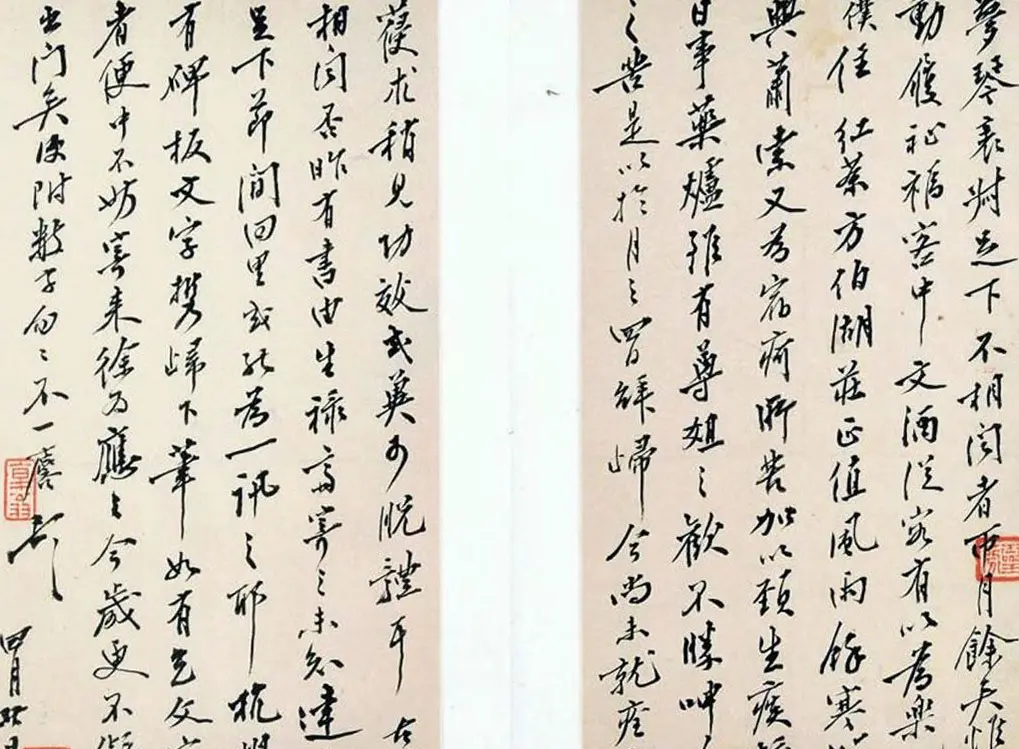 夢琴足下不相聞者帀月餘矣惟
動履祉福客中文酒從容有以為樂
僕住紅茶方伯湖莊正值風雨餘寒
興蕭索又為宿疴所苦加以頸生
日事藥爐雖有尊俎之歡不勝呻
之苦是以於月之四日辭歸今尚未就痊
求稍見功效或冀可脫體耳
相聞否昨有書由生祿齋寄之未知達
足下節間回里或能為一訊之耶杭
有碑板文字攜歸下筆如有文
者便中不妨寄來徐為應之今歲更不
出門矣便附數字匆匆不一麐頓
四月